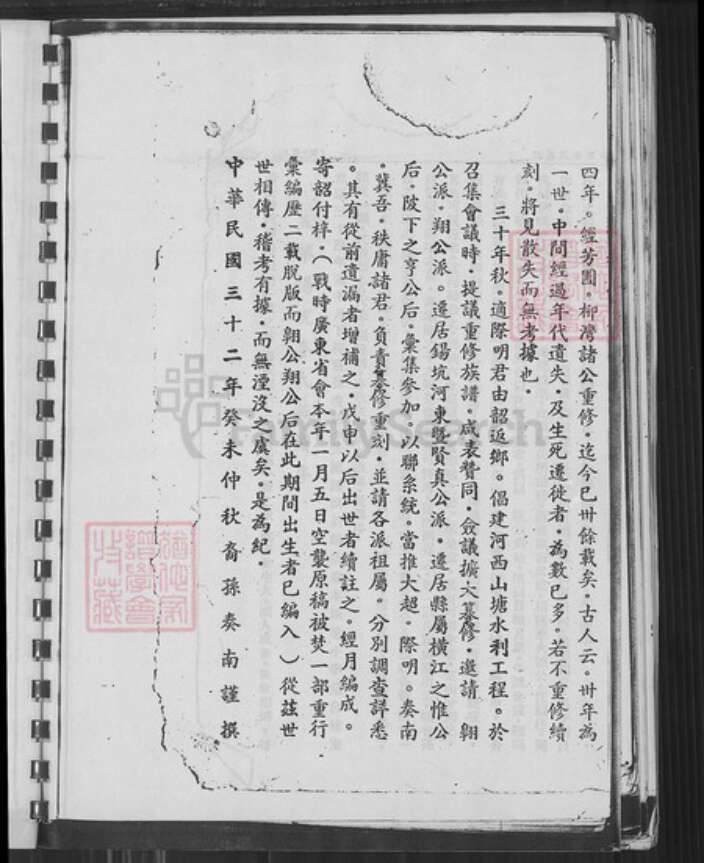 四年。經芳圃。柳灣諸公重修。迄今已卅餘載矣。古人云。卅年為
一世。中間經過年代遺失。及生死遷徙者。為數已多。若不重修續
刻。將見散失而無考據也。
三十年秋。適際明君由韶返鄉。倡建河西山塘水利工程。於
召集會議時。提議重修族譜。咸表贊同。僉議擴大纂修。邀請 翱
公派。翔公派。遷居錫坑河東暨賢真公派。遷居縣屬橫江之惟公
后。陂下之亨公后。彙集參加。以聯系統。當推大超。際明。奏南
。冀吾。秩庸諸君。負責纂修重刻。並請各派祖屬。分別調查詳悉
。其有從前遺漏者增補之。戊申以后出世者續註之。經月編成。
寄韶付梓。（戰時廣東省會本年一月五日空襲原稿被焚一部重行
彙編歷二載脫版而翱公翔公后在此期間出生者已編入）從茲世
世相傳。稽考有據。而無湮沒之虞矣。是為紀。
中華民國三十二年癸未仲秋裔孫奏南謹撰
FamilySearch